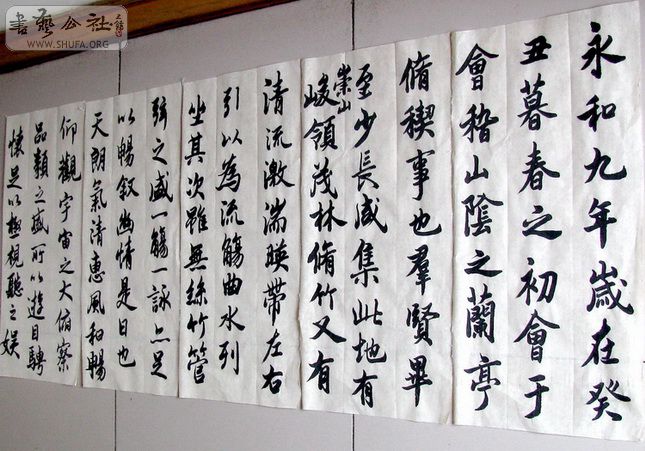 永和九年歲在癸
丑暮春之初會于
會稽山陰之蘭亭
脩稧事也羣賢畢
至少長咸集此地有
崇山
峻領茂林脩竹又有
清流激湍暎帶左右
引以為流觴曲水列
坐其次雖無絲竹管
弦之盛一觴一詠亦足
以暢敘幽情是日也
天朗氣清惠風和暢
仰觀宇宙之大俯察
品類之盛所以遊目騁
懷足以極視聽之娛
書藝公社
WWW.SHUFA.ORG